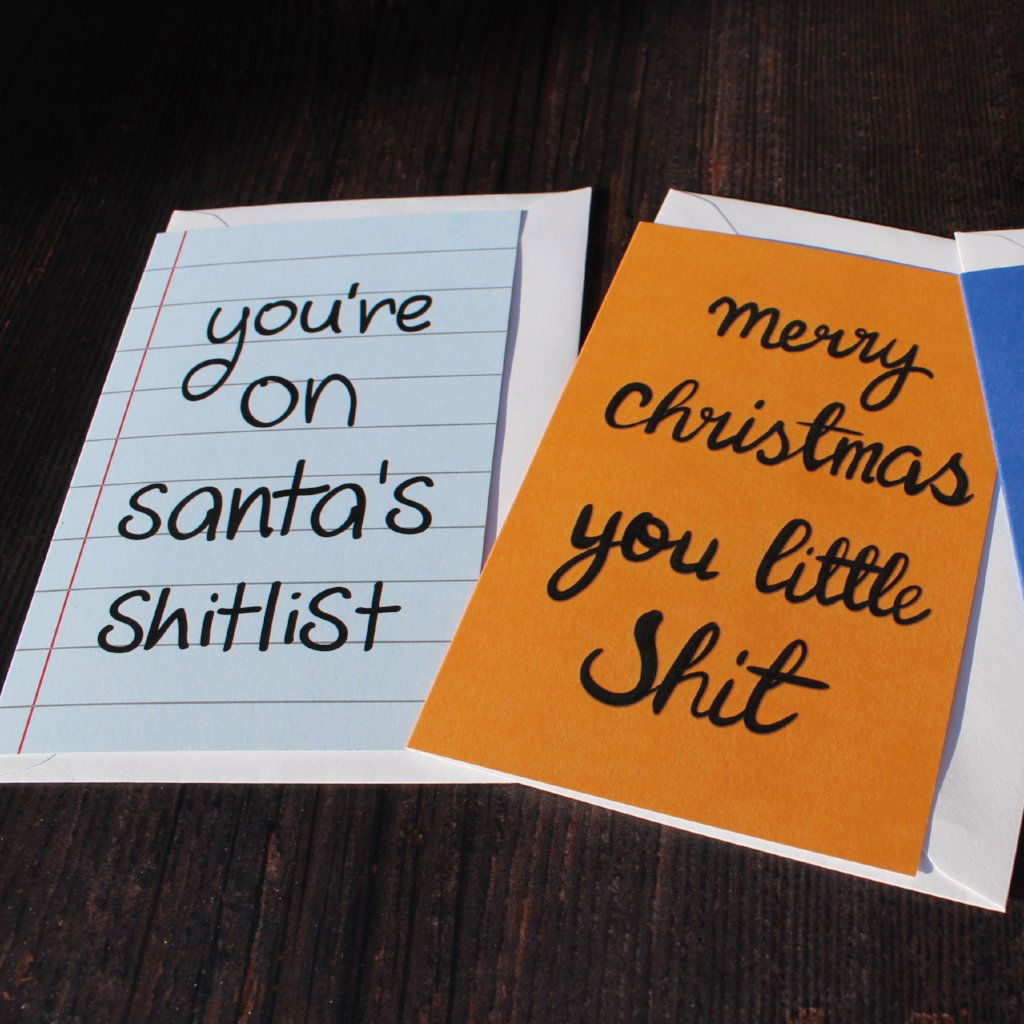 you're
on
santa's
shitlist
merry
christmas
you little
Shit